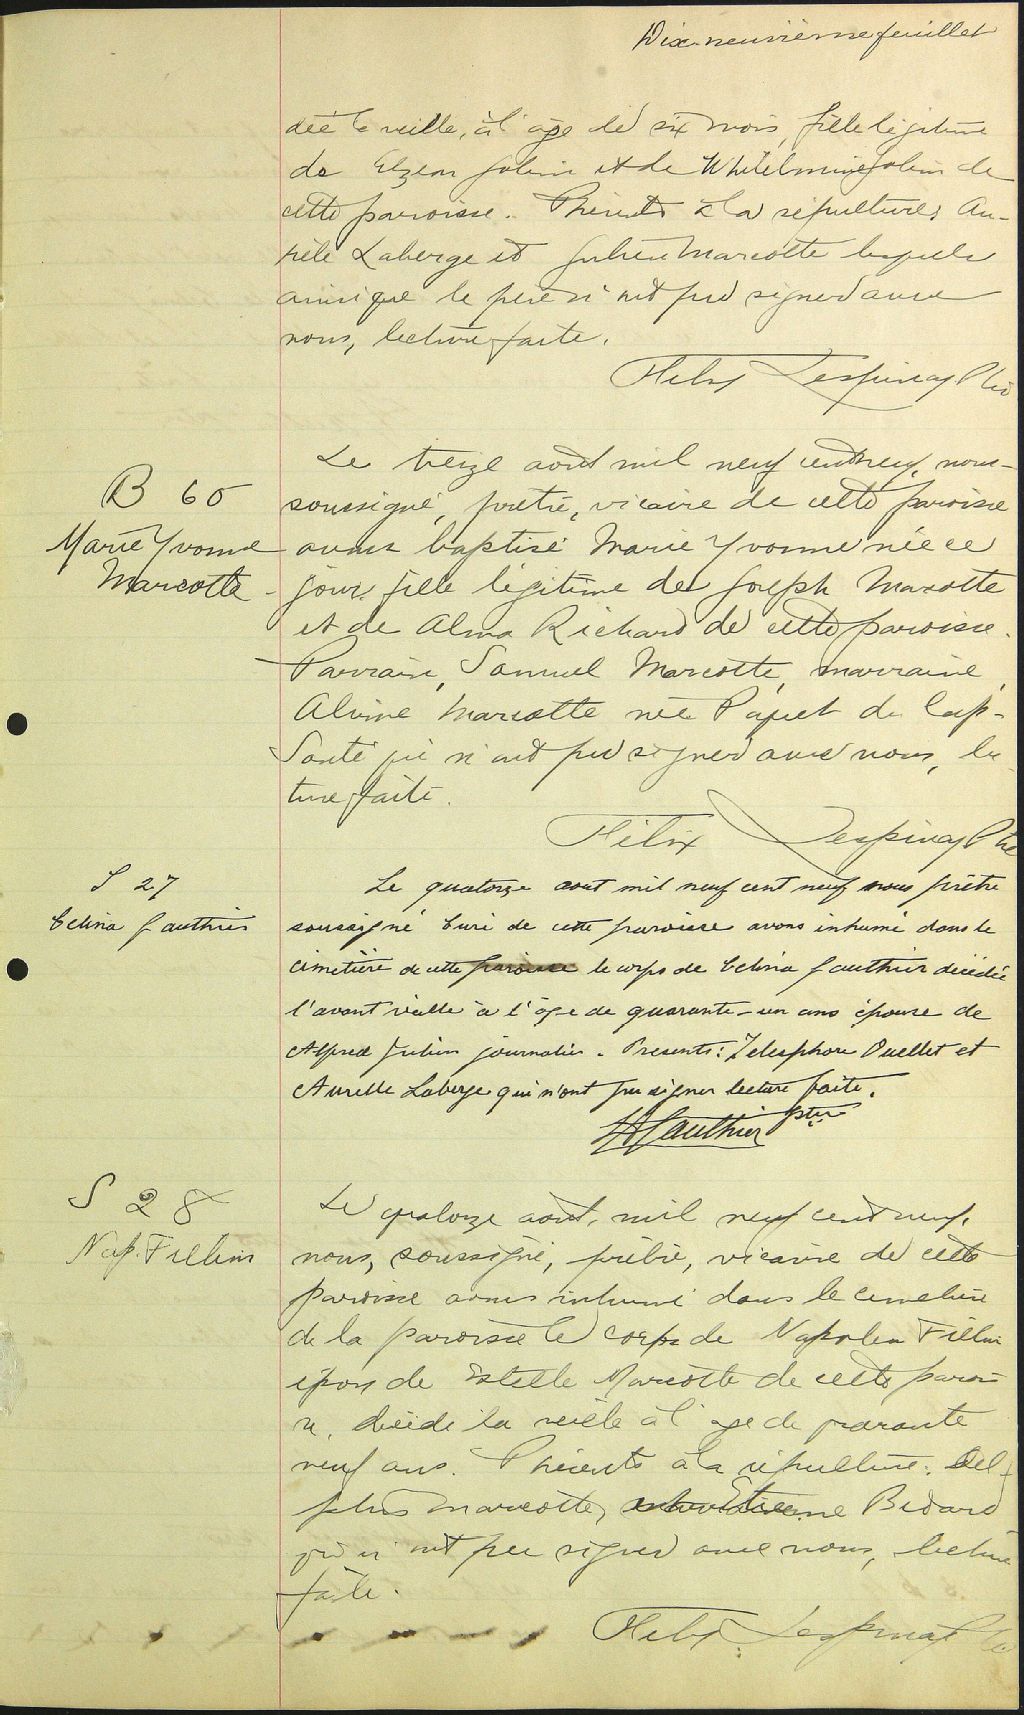 Dix-neuvième feuillet
dée la veille, à l'age de six mois, fille légitime
de Elzear Julien et de Julien de
cette paroisse. Présents à la sépulture: Au-
rèle Laberge et Julien Marcotte lesquels
ainsi que le père n'ont pu signer avec
nous, lecture faite.
Félix Lespinay Ptre
Le treize août mil neuf cent neuf, nous
B 60
soussigné, prêtre, vicaire de cette paroisse
Marie Yvonne
avons baptisé Marie Yvonne née ce
Marcotte
jour, fille légitime de Joseph Marcotte
et de Alma Richard de cette paroisse.
Parrain, Samuel Marcotte, marraine,
Alvine Marcotte née Paquet de Cap-
Santé qui n'ont pu signer avec nous, lec-
ture faite.
Félix Lespinay Ptre
S 27
Le quatorze aout mil neuf cent neuf nous prêtre
Celina Gauthier
soussigné Curé de cette paroisse avons inhumé dans le
cimetière de cette paroisse le corps de Celina Gauthier décédée
l'avant veille à l'âge de quarante-un ans épouse de
Alfred Julien journalier. Presents: Telesphore Ouellet et
Aurelle Laberge qui n'ont pu signer lecture faite.
Gauthier ptre
S 28
Le quatorze août, mil neuf cent neuf,
Nap. Fillion
nous, soussigné, prêtre, vicaire de cette
paroisse avons inhumé dans le cimetière
de la paroisse le corps de Napoleon Fillion
époux de Estelle Marcotte de cette parois
se, décédé la veille à l'age de quarante
neuf ans. Présents à la sépulture: Del-
phis Marcotte, Etienne Bedard
qui n'ont pu signer avec nous, lecture
faite.
Félix Lespinay Ptre